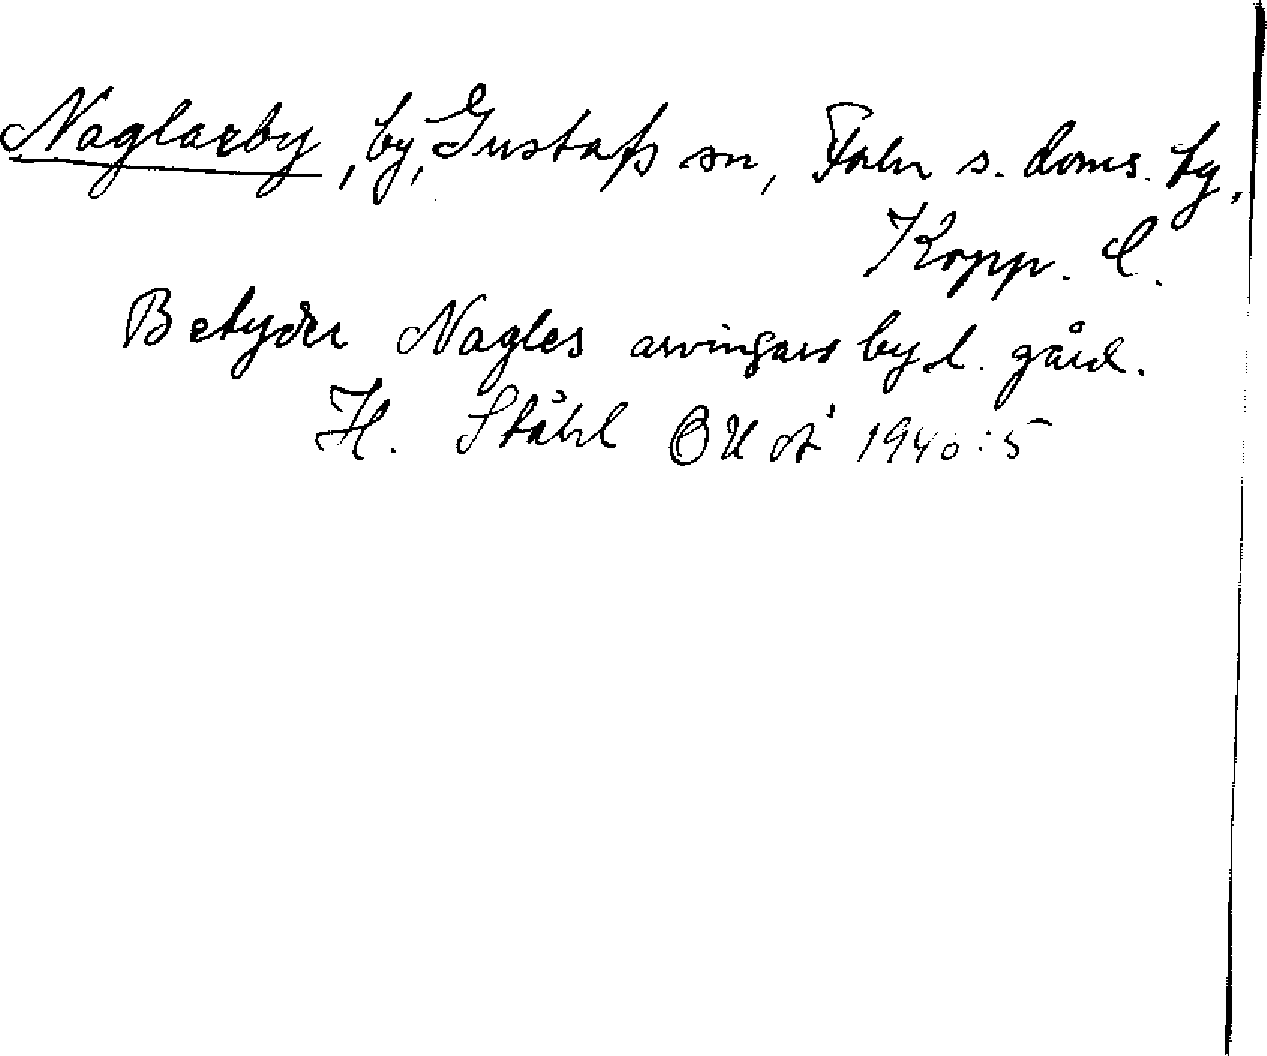 Naglarby, by, Gustafs sn, Falu s. doms. lg,
Kopp. l.
Betyder Nagles arvingars by l. gård.
H. Ståhl OUÅ 1940:5